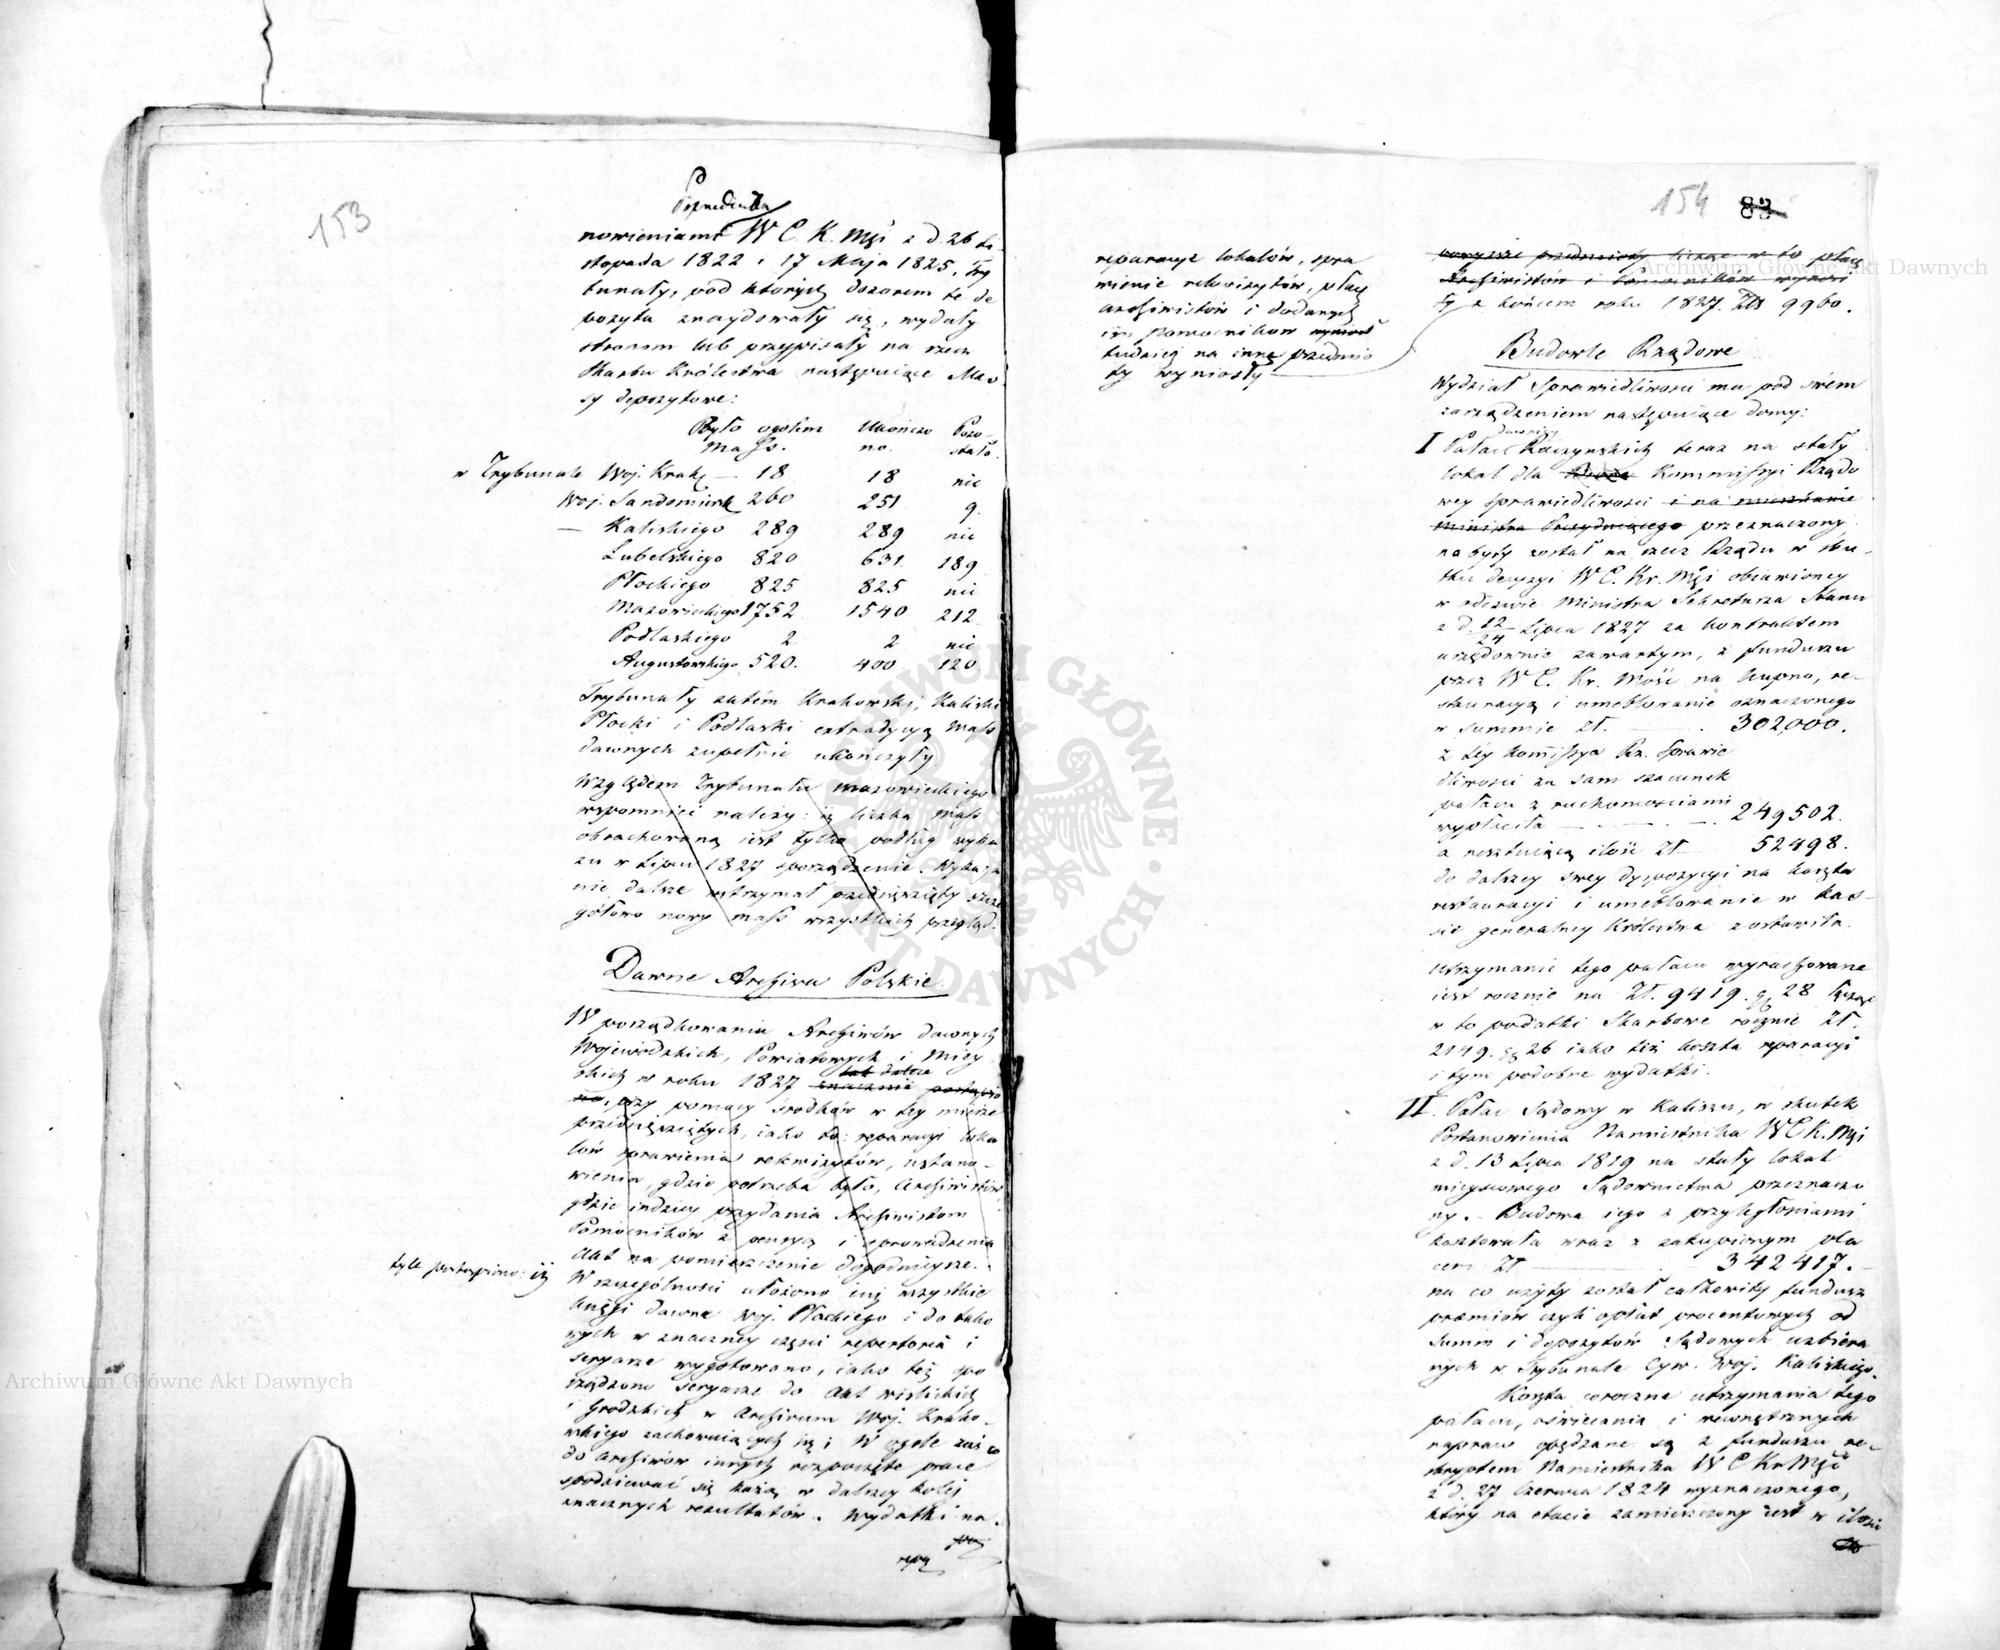 153
nowieniami W C. K. Mści z d. 26 Li-
stopada 1822 i 17 Maja 1825, Try
bunały, pod których dozorem te de
pozyta znaydowały się, wydały
stronom lub przypisały na rzecz
Skarbu Królestwa następujące Mas-
sy depozytowe:
Było ogołem Ukończo Pozo-
Mass. no. stało.
w Trybunale Woj. Krak. — 18 18 nic
Woj. Sandomirsk 260 251 9.
— Kaliskiego 289 289 nic
Lubelskiego 820 631. 189
Płockiego 825 825 nic
Mazowieckiego 1752 1540 212
Podlaskiego 2 2 nic
Augustowskiego 520. 400 120
Trybunały zatém Krakowski, Kaliski
Płocki i Podlaski extradycyą Mass
dawnych zupełnie ukończyły
Względem Trybunału Mazowieckiego
wspomnieć należy: iż liczba Mass
obrachowaną iest tylko podług wyka
zu w Lipcu 1827 sporządzenie.
nie dalsze wstrzymał przedsięwzięty szcze
gółowo nowy mass wszystkich przegląd.
Dawne Archiwa Polskie.
W porządkowaniu Archiwów dawnych
Wojewódzkich, Powiatowych i Miey
skich w roku 1827 znacznie postąpio
tak dalece
no, przy pomocy środków w tey mierze
przedsięwziętych, iako to: reparacyi loka
lów sprawienia rekwizytów, ustano-
wienia, gdzie potrzeba było, Archiwistów
gdzie indziey przydania Archiwistom
Pomocników z pensyą i sprowadzenia
Akt na pomieszczenie dogodnieysze.
tyle postąpiono: iż
W szczególności ułożono iuż wszystkie
księgi dawne Woj. Płockiego i do tako
wych w znaczney części repertoria i
seryarze wygotowano, iako też spo
rządzono seryarze do Akt wiślickich
i Grodzkich w Archiwum Woj. Krako-
wskiego zachowuiących się; W ogole zaś co
do archiwów innych rozpoczęte prace
spodziewać się każą w dalszey koleі
znacznych rezultatów. Wydatki na.
154 83
reparacye lokalów, spra
wienie rekwizytów, płacę
archiwistów i dodanych
im pomocników wynios
tudzież na inne przedmio
ty wyniosły
powyższe przedmioty licząc w to płacę
Archiwistów i pomocników wynosi
ły z końcem roku 1827. Zł. 9960.
Budowle Rządowe
Wydział Sprawiedliwości ma pod swém
zarządzeniem następuiące domy:
dawniey
I Pałac Raczyńskich teraz na stały
lokal dla Kommissyi Rządo
wey Sprawiedliwości i na mieszkanie
Ministra Prezyduiącego przeznaczony
nabyty został na rzecz Rządu w sku-
tku decyzyi W C. Kr. Mści obiawioney
w odezwie Ministra Sekretarza Stanu
z d. 12/24 Lipca 1827 za kontraktem
urzędownie zawartym, z funduszu
przez W C. Kr. Mość na kupno, re-
stauracyą i umeblowanie oznaczonego
w summie zł. 302,000.
z téy Kommissya Rz. Sprawie
dliwości za sam szacunek
pałacu z ruchomościami
wypłaciła — 249502.
a resztuiącą ilość Zł— 52498.
do dalszey swey dyspozycyi na koszta
restauracyi i umeblowanie w kas-
sie generalney Królestwa zostawiła.
Utrzymanie tego pałacu wyrachowane
iest rocznie na Zł. 9419. gr 28 łącząc
w to podatki Skarbowe rocznie Zł.
2149. gr 26 iako też koszta reparacyi
i tym podobne wydatki.
II. Pałac Sądowy w Kaliszu, w skutek
Postanowienia Namiestnika W C K. Mści
z d. 13 Lipca 1819 na stały lokal
mieyscowego Sądownictwa przeznaczo
ny. - Budowa iego z przyległościami
kosztowała wraz z zakupionym pla
cem Zł — 342417.
na co użyty został całkowity fundusz
præmiów czyli opłat procentowych od
Summ i depozytów Sądowych uzbiera
nych w Trybunale Cyw. Woj. Kaliskiego.
Koszta coroczne utrzymania tego
pałacu, oświecania i wewnętrznych
napraw opędzane są z funduszu re-
skryptem Namiestnika W C Kr Mści
z d. 27 Czerwca 1824 wyznaczonego,
który na etacie zamieszczony iest w ilości
Archiwum Główne Akt Dawnych
Archiwum Główne Akt Dawnych
ARCHIWUM GŁÓWNE AKT DAWNYCH